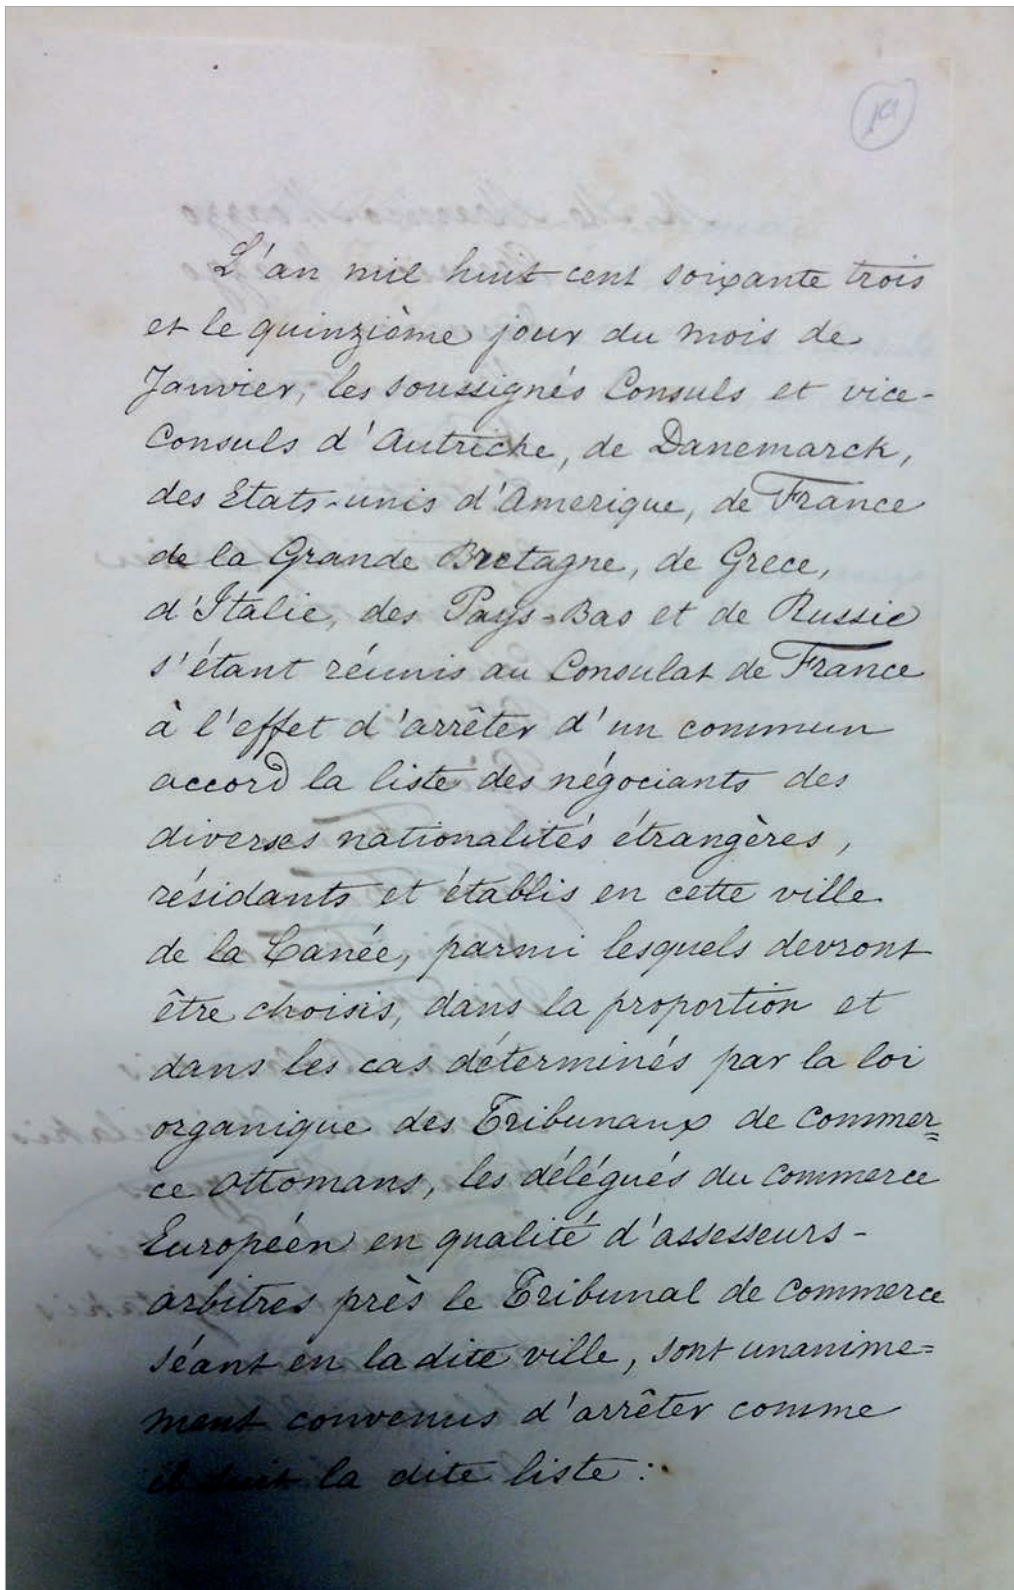 L'an mil huit cent soixante trois
et le quinzième jour du mois de
Janvier, les soussignés Consuls et vice-
Consuls d'Autriche, de Danemarck,
des Etats-unis d'Amerique, de France
de la Grande Bretagne, de Grece,
d'Italie, des Pays-Bas et de Russie
s'étant réunis au Consulat de France
à l'effet d'arrêter d'un commun
accord la liste des négociants des
diverses nationalités étrangères,
résidants et établis en cette ville
de la Canée, parmi lesquels devront
être choisis, dans la proportion et
dans les cas déterminés par la loi
organique des Tribunaux de Commer=
ce Ottomans, les délégués du Commerce
Européen en qualité d'assesseurs-
arbitres près le Tribunal de Commerce
séant en la dite ville, sont unanime=
ment convenus d'arrêter comme
il suit la dite liste :